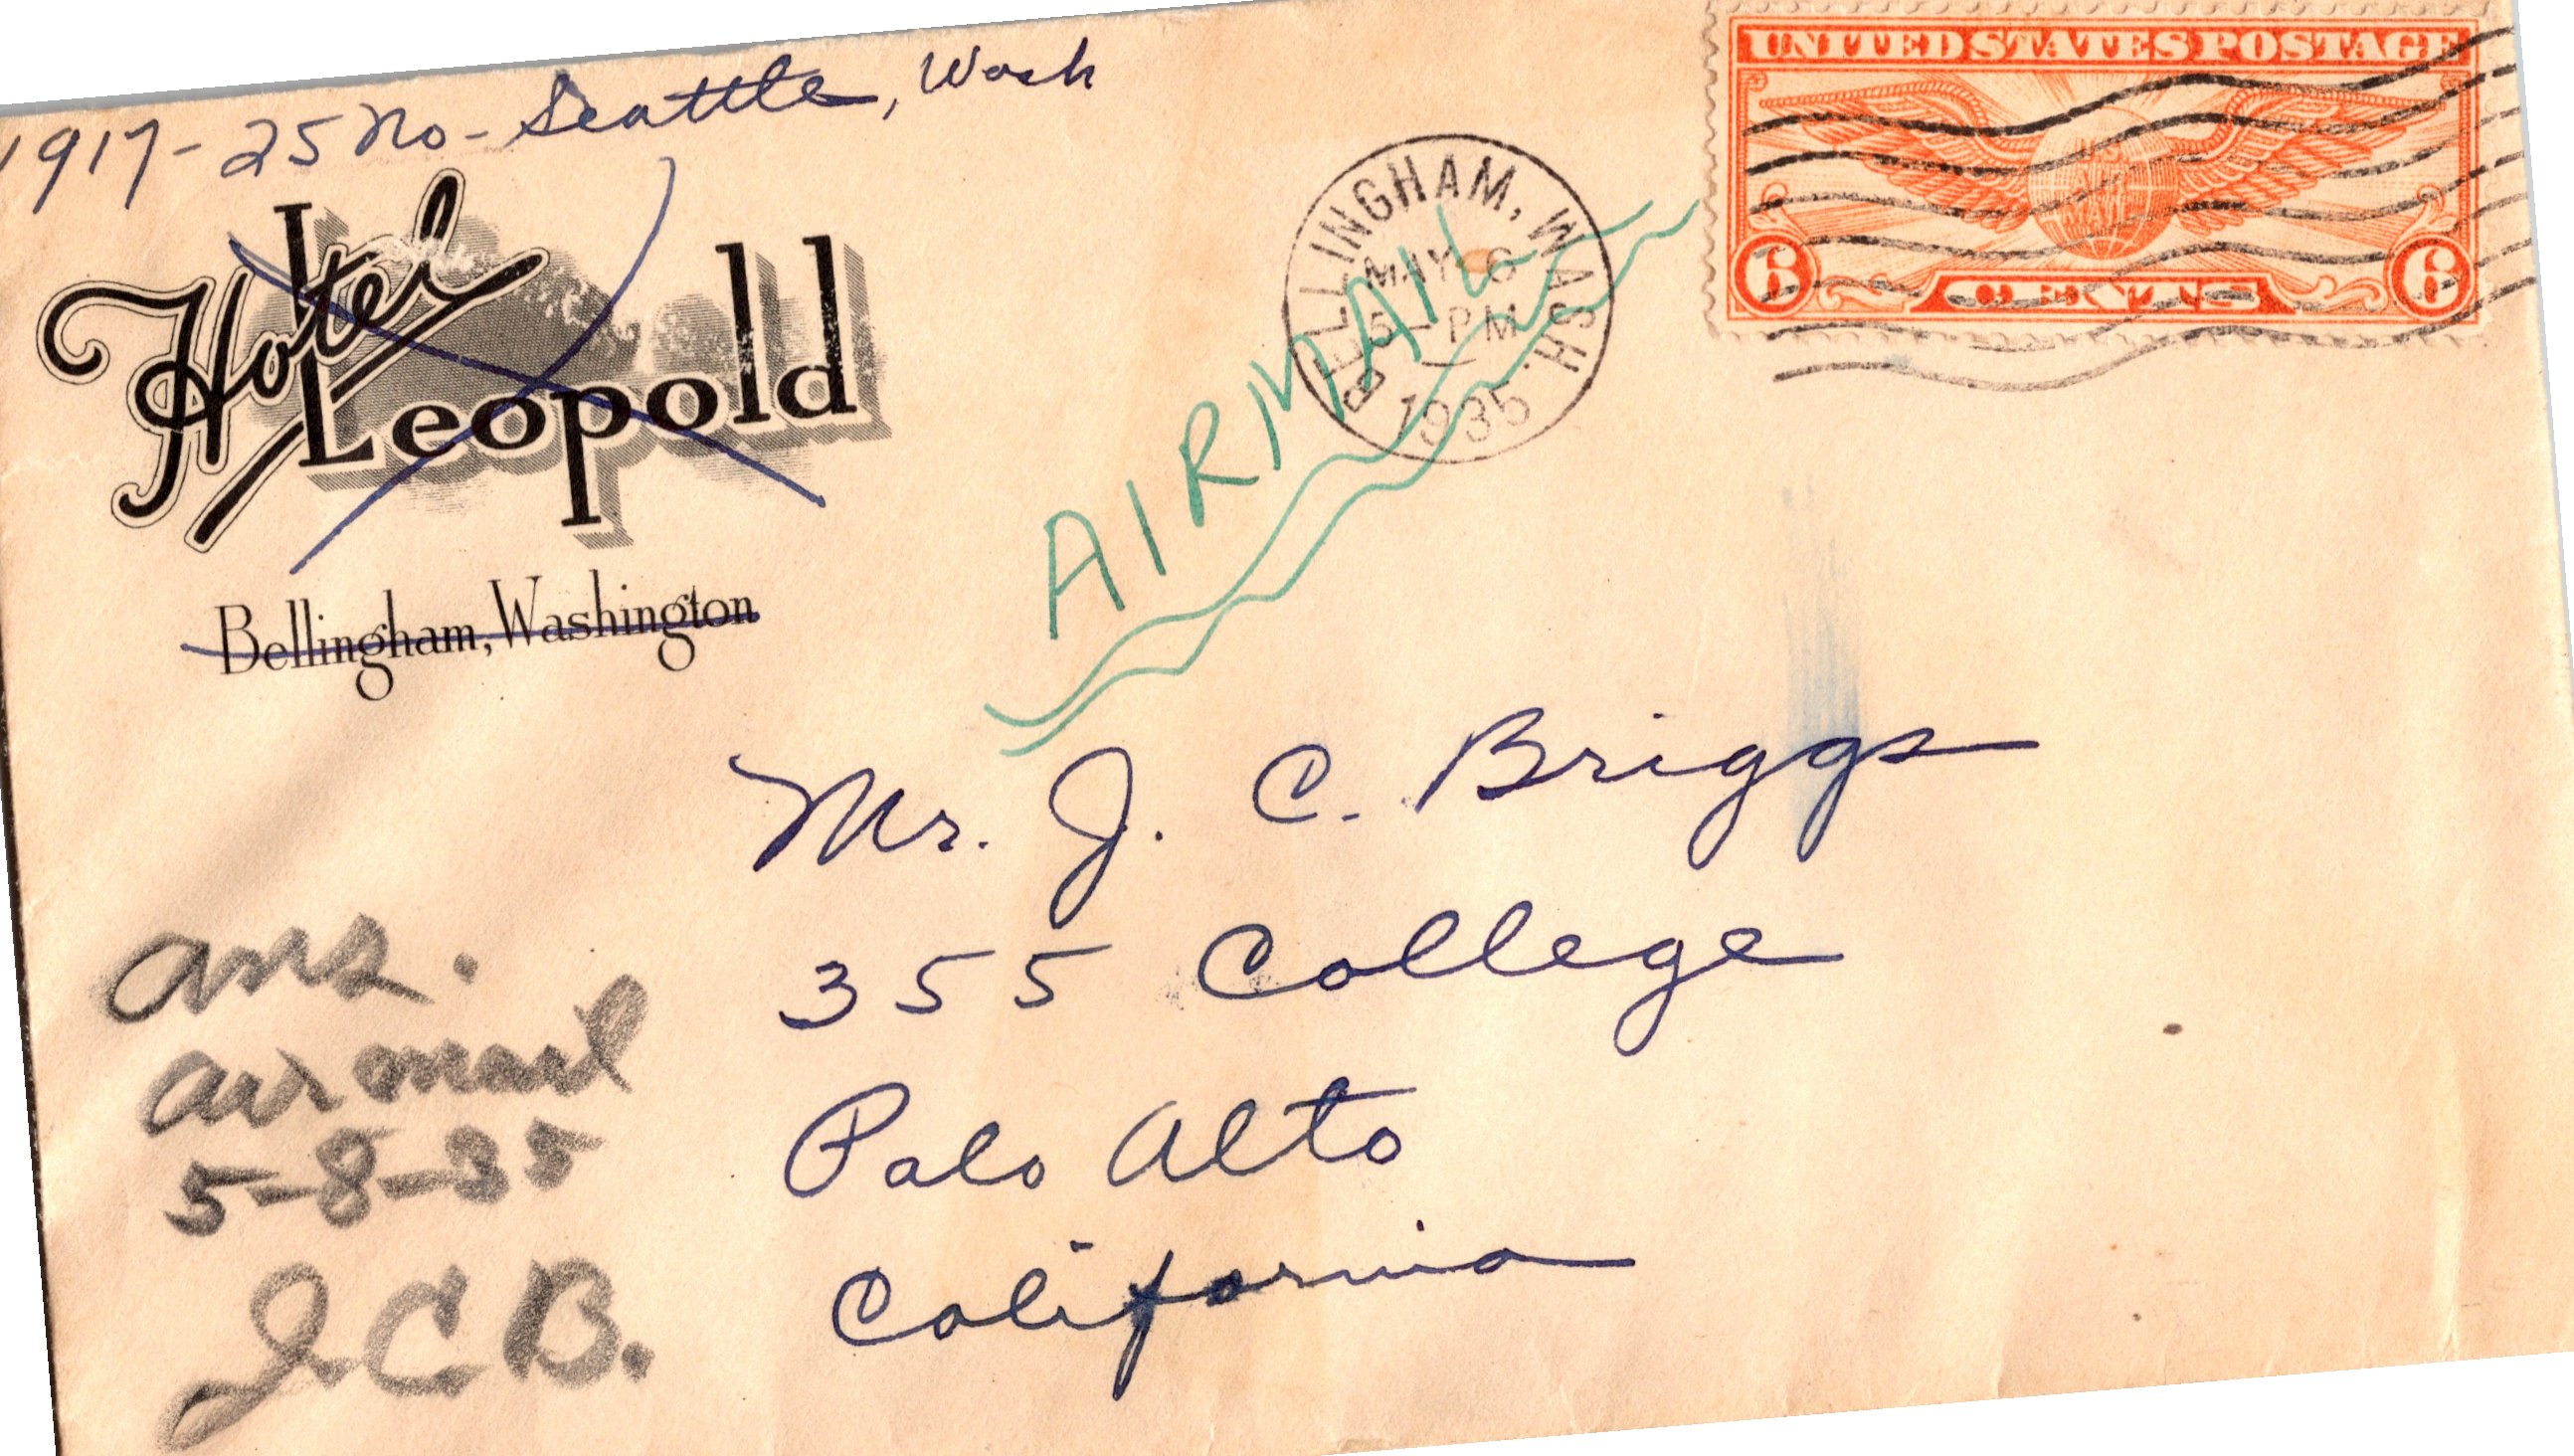 1917-25 No-Seattle, Wash
Hotel
Leopold
Bellingham, Washington
BELLINGHAM, WASH.
MAY 6
5-PM
1935
AIRMAIL
UNITED STATES POSTAGE
U.S.
AIR
MAIL
6 CENTS 6
Mr. J. C. Briggs
355 College
Palo Alto
California
ans.
air mail
5-8-35
J.C.B.